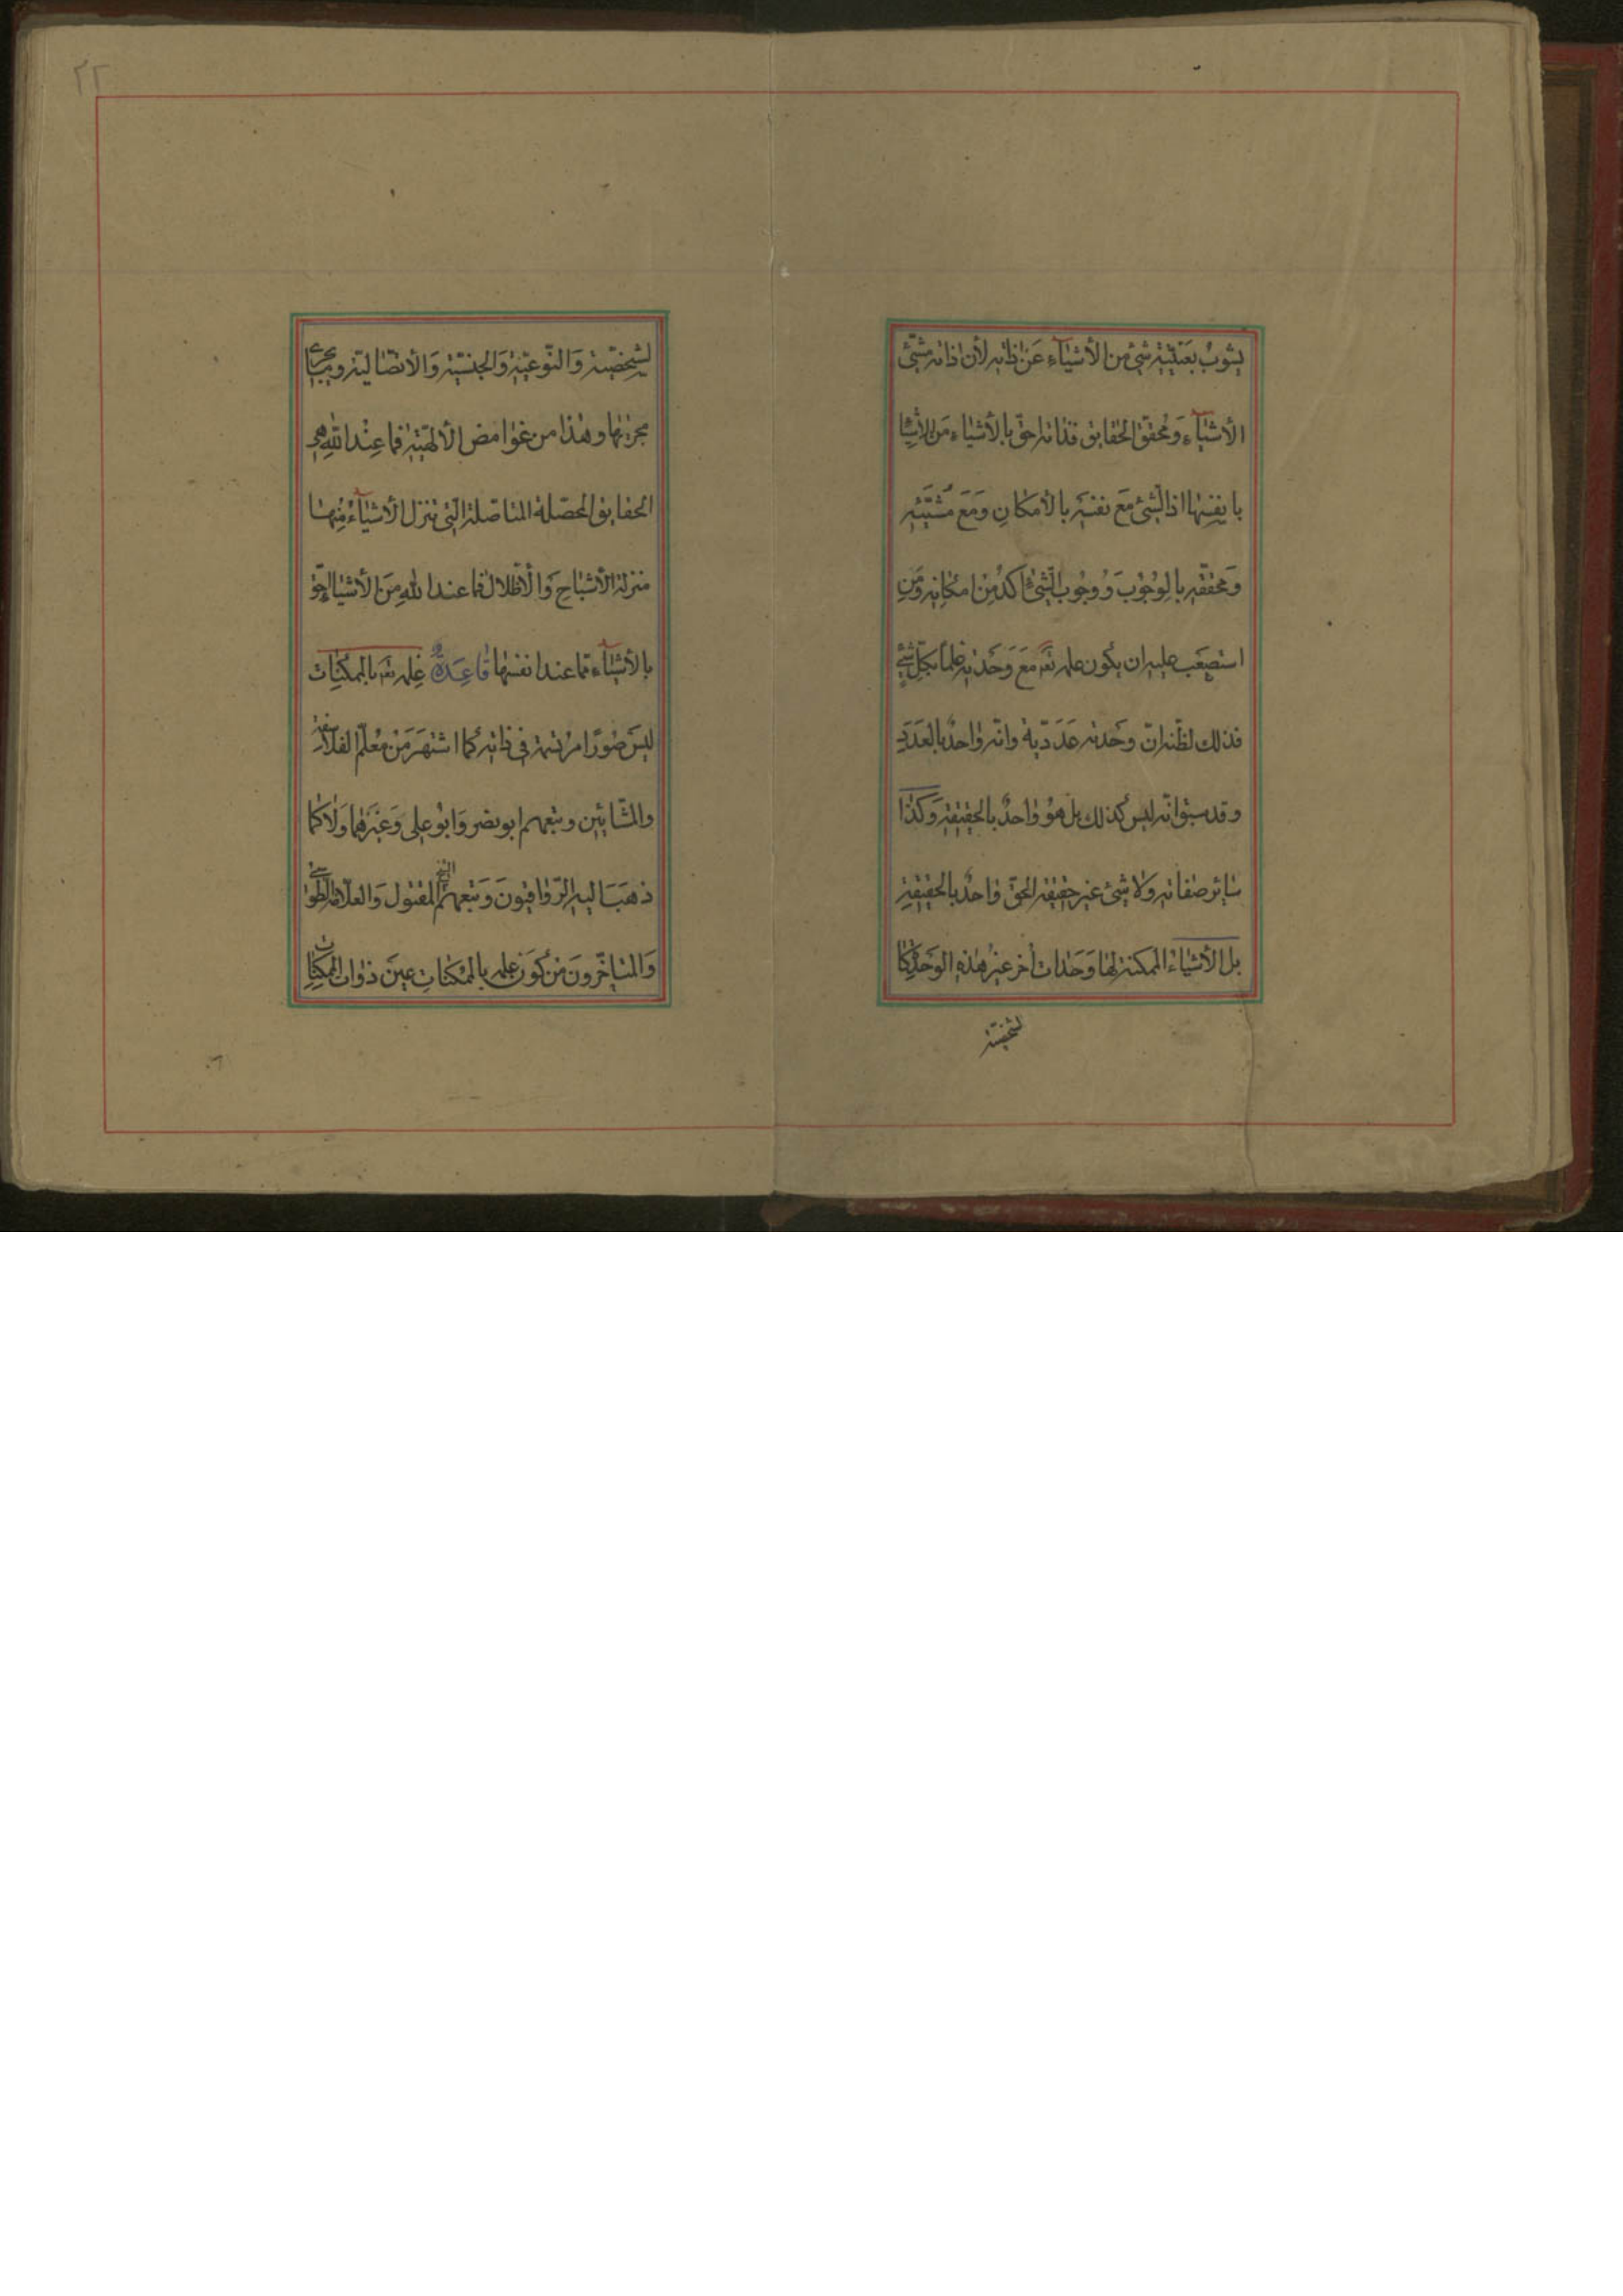 يشوب بغيبة شئ من الأشيآء عَن ذاته لأن ذاته مشيّئ
الأشيآء وَمُحقّق الحقايق فذاته احقّ بالأشياء مَن الأشيا
بانفسها اذا لشئ مَع نفسه بالأمكانِ وَمَعَ مُشيّئه
وَمحقّقه بالوُجُوبَ وَوجُوب الشئ اكدُ مِن امكانه وَمَن
استصعَب عليه ان يكون علمه تعه مَعَ وَحَدته علماً بكلّ شئٍ
فذلك لظنه انّ وحَدته عَدَديّة وانّه واحدٌ بالعَدَدِ
وقد سبق انّه ليس كذلك بل هُوَ واحدٌ بالحقيقة وَكذا
ساير صفاته ولا شئ غير حقيقة الحقّ واحدٌ بالحقيقةِ
بل الأشياء الممكنة لها وَحَدات أخر غير هٰذه الوَحَدة كا
لشخصيّة
٢٢
لشخصيّة وَالنّوعيّة وَالجنسيّة وَالأتصاليّة وما يجرى
مجريٰها وهٰذا من غوامض الألٰهيّة فما عِندالله هى
الحقايق المحصّلة المتاصّلة الّتى تنزل الأشيآء مِنها
منزلة الأشباح وَالأظلال فما عندالله مِنَ الأشياء احقّ
بالأشيآء ممّا عند انفسها قاعِدةٌ عِلمه تعه بالممكنات
ليسَ صُوَرًا مرتسمة فى ذاته كما اشتهرَ مَن مُعلّم الفلاسفة
والمشّايِين وتبعهم ابونصر وَابوعلى وَغيَرهما وَلا كما
ذهَبَ اليه الرّواقيونَ وَتبعهم الشيخ المقتول وَالعلّامة الطوسى
وَالمتاخّرونَ مَن كوَن علمه بالممكنات عينَ ذوات الممكنات